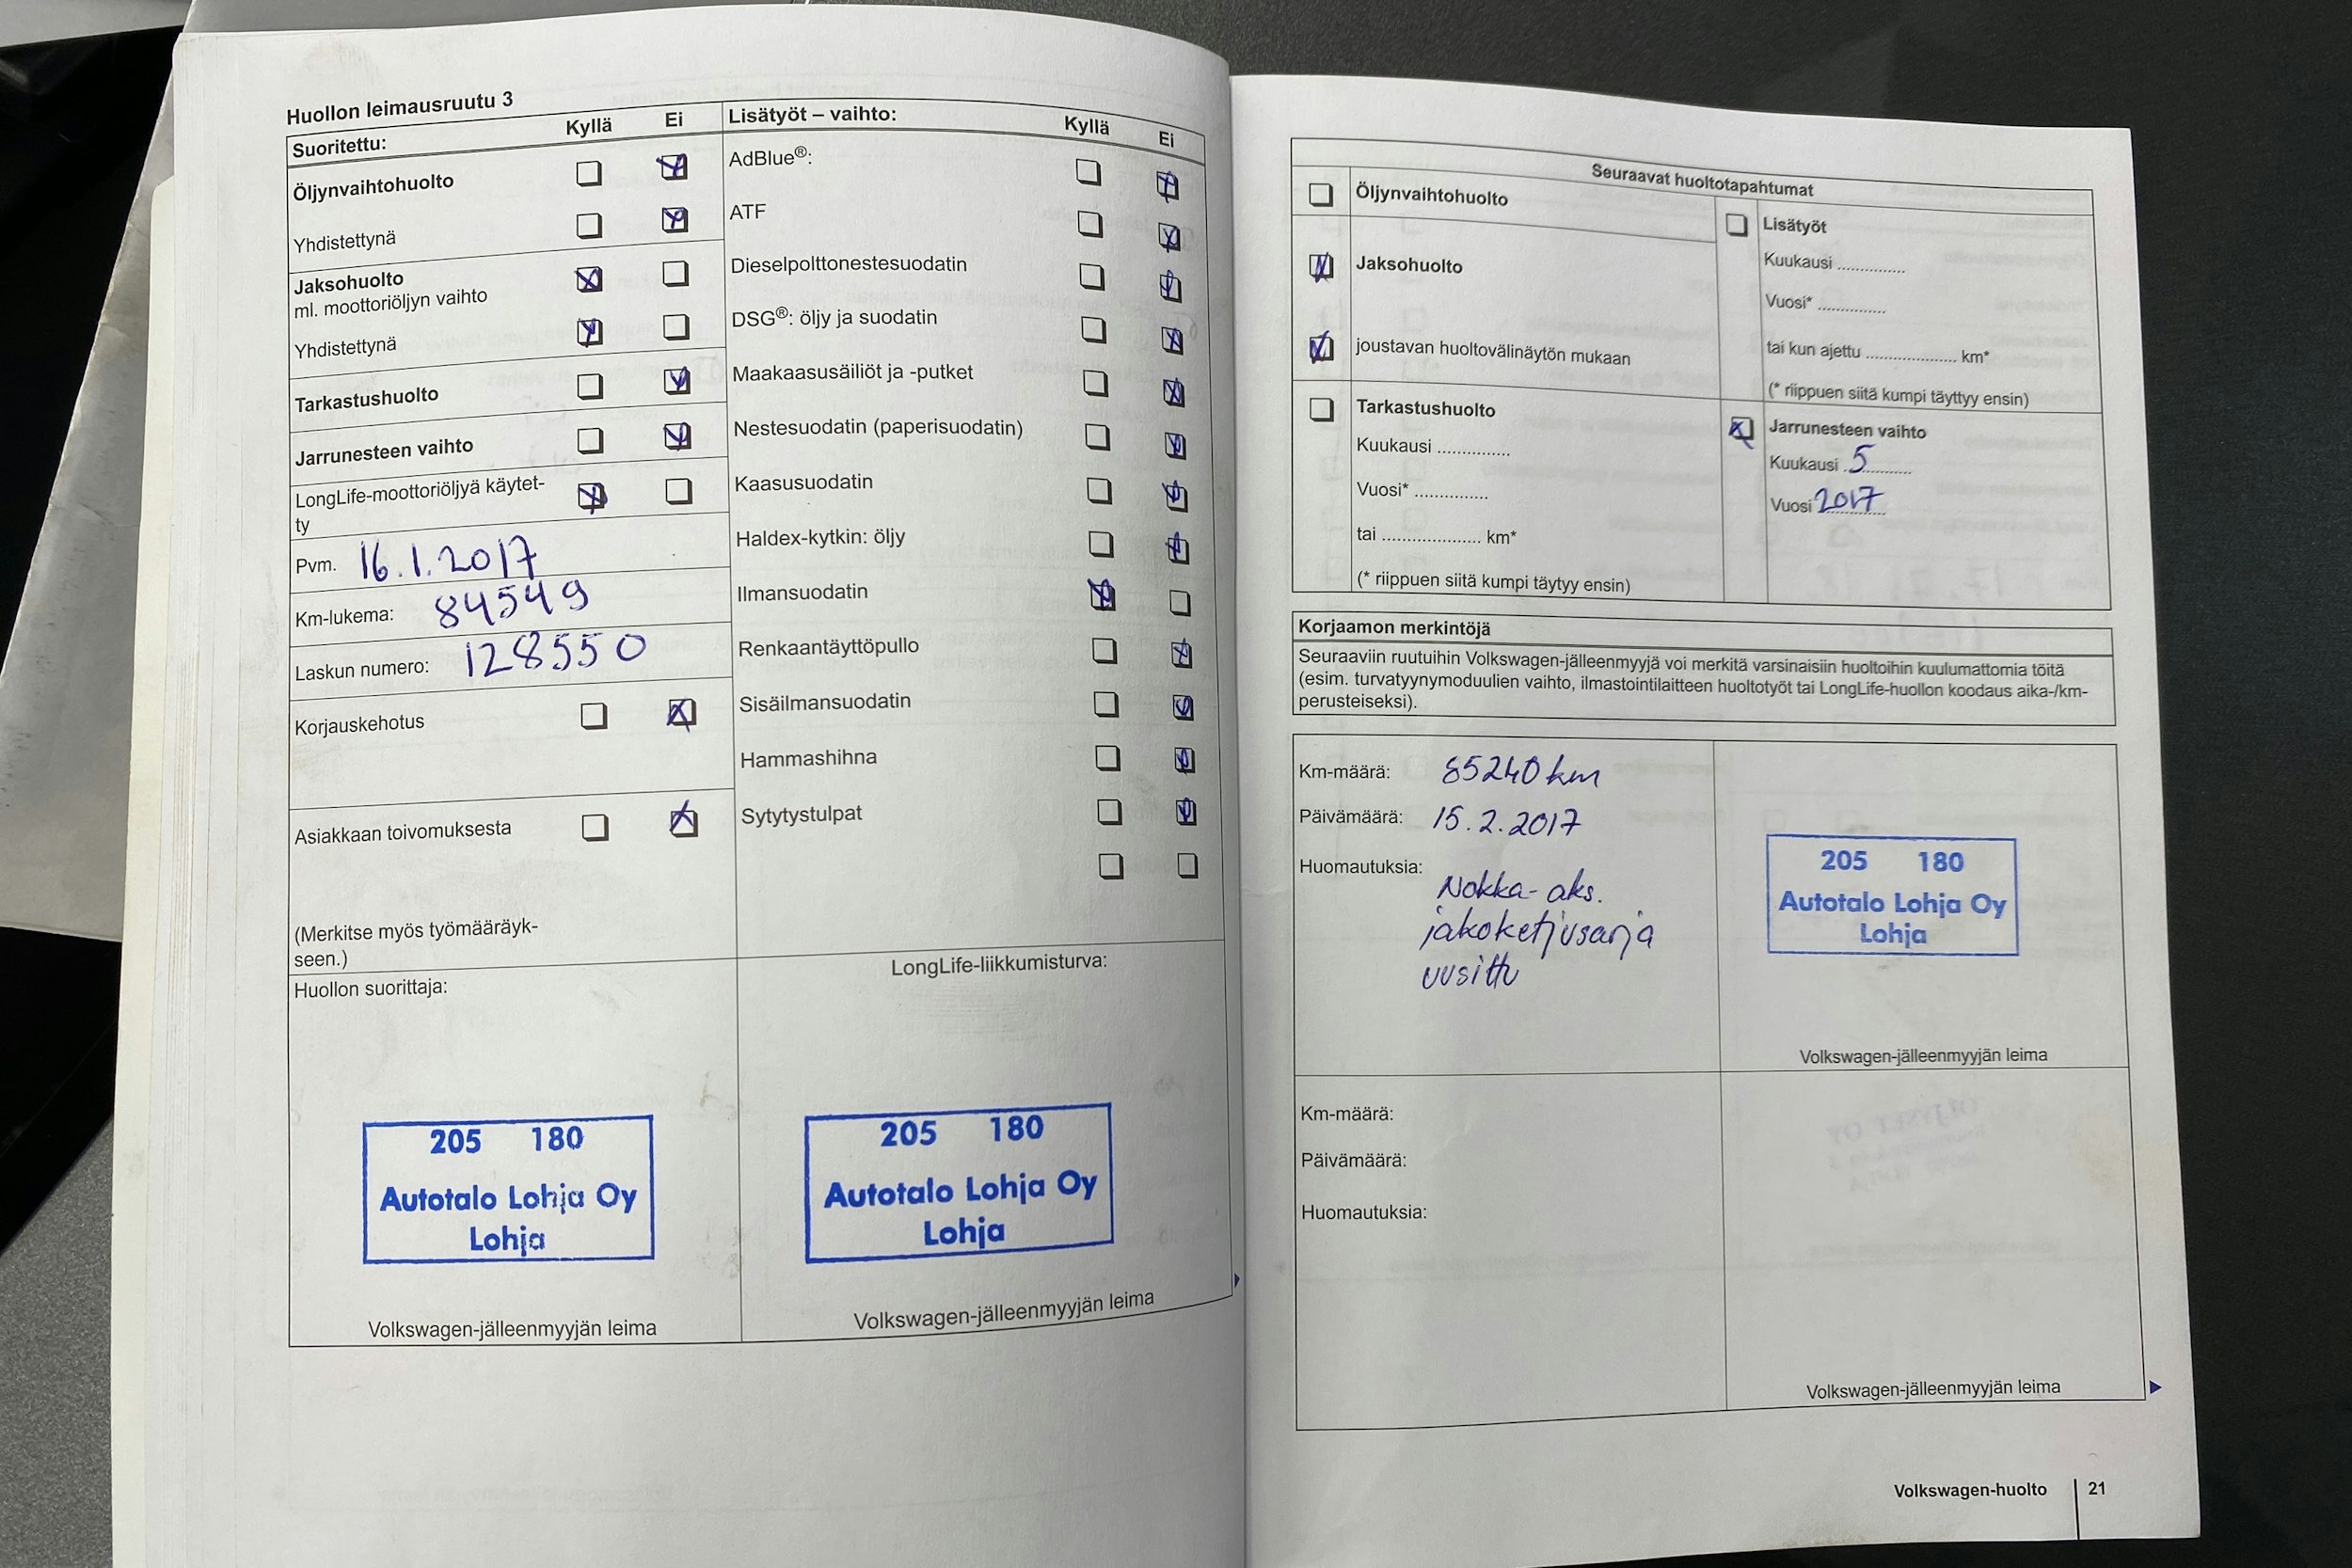 Huollon leimausruutu 3
Suoritettu: Kyllä Ei
Öljynvaihtohuolto
Yhdistettynä
Jaksohuolto
ml. moottoriöljyn vaihto
Yhdistettynä
Tarkastushuolto
Jarrunesteen vaihto
LongLife-moottoriöljyä käytet-
ty
Pvm. 16.1.2017
Km-lukema: 84549
Laskun numero: 128550
Korjauskehotus
Asiakkaan toivomuksesta
(Merkitse myös työmääräyk-
seen.)
Lisätyöt – vaihto: Kyllä Ei
AdBlue®:
ATF
Dieselpolttonestesuodatin
DSG®: öljy ja suodatin
Maakaasusäiliöt ja -putket
Nestesuodatin (paperisuodatin)
Kaasusuodatin
Haldex-kytkin: öljy
Ilmansuodatin
Renkaantäyttöpullo
Sisäilmansuodatin
Hammashihna
Sytytystulpat
Huollon suorittaja:
205 180
Autotalo Lohja Oy
Lohja
Volkswagen-jälleenmyyjän leima
LongLife-liikkumisturva:
205 180
Autotalo Lohja Oy
Lohja
Volkswagen-jälleenmyyjän leima
Seuraavat huoltotapahtumat
Öljynvaihtohuolto
Jaksohuolto
joustavan huoltovälinäytön mukaan
Tarkastushuolto
Kuukausi ...............
Vuosi* ...............
tai .................... km*
(* riippuen siitä kumpi täytyy ensin)
Lisätyöt
Kuukausi ...............
Vuosi* ...............
tai kun ajettu .................... km*
(* riippuen siitä kumpi täyttyy ensin)
Jarrunesteen vaihto
Kuukausi 5
Vuosi 2017
Korjaamon merkintöjä
Seuraaviin ruutuihin Volkswagen-jälleenmyyjä voi merkitä varsinaisiin huoltoihin kuulumattomia töitä
(esim. turvatyynymoduulien vaihto, ilmastointilaitteen huoltotyöt tai LongLife-huollon koodaus aika-/km-
perusteiseksi).
Km-määrä: 85240 km
Päivämäärä: 15.2.2017
Huomautuksia:
Nokka-aks.
jakoketjusarja
uusittu
205 180
Autotalo Lohja Oy
Lohja
Volkswagen-jälleenmyyjän leima
Km-määrä:
Päivämäärä:
Huomautuksia:
Volkswagen-jälleenmyyjän leima
Volkswagen-huolto 21